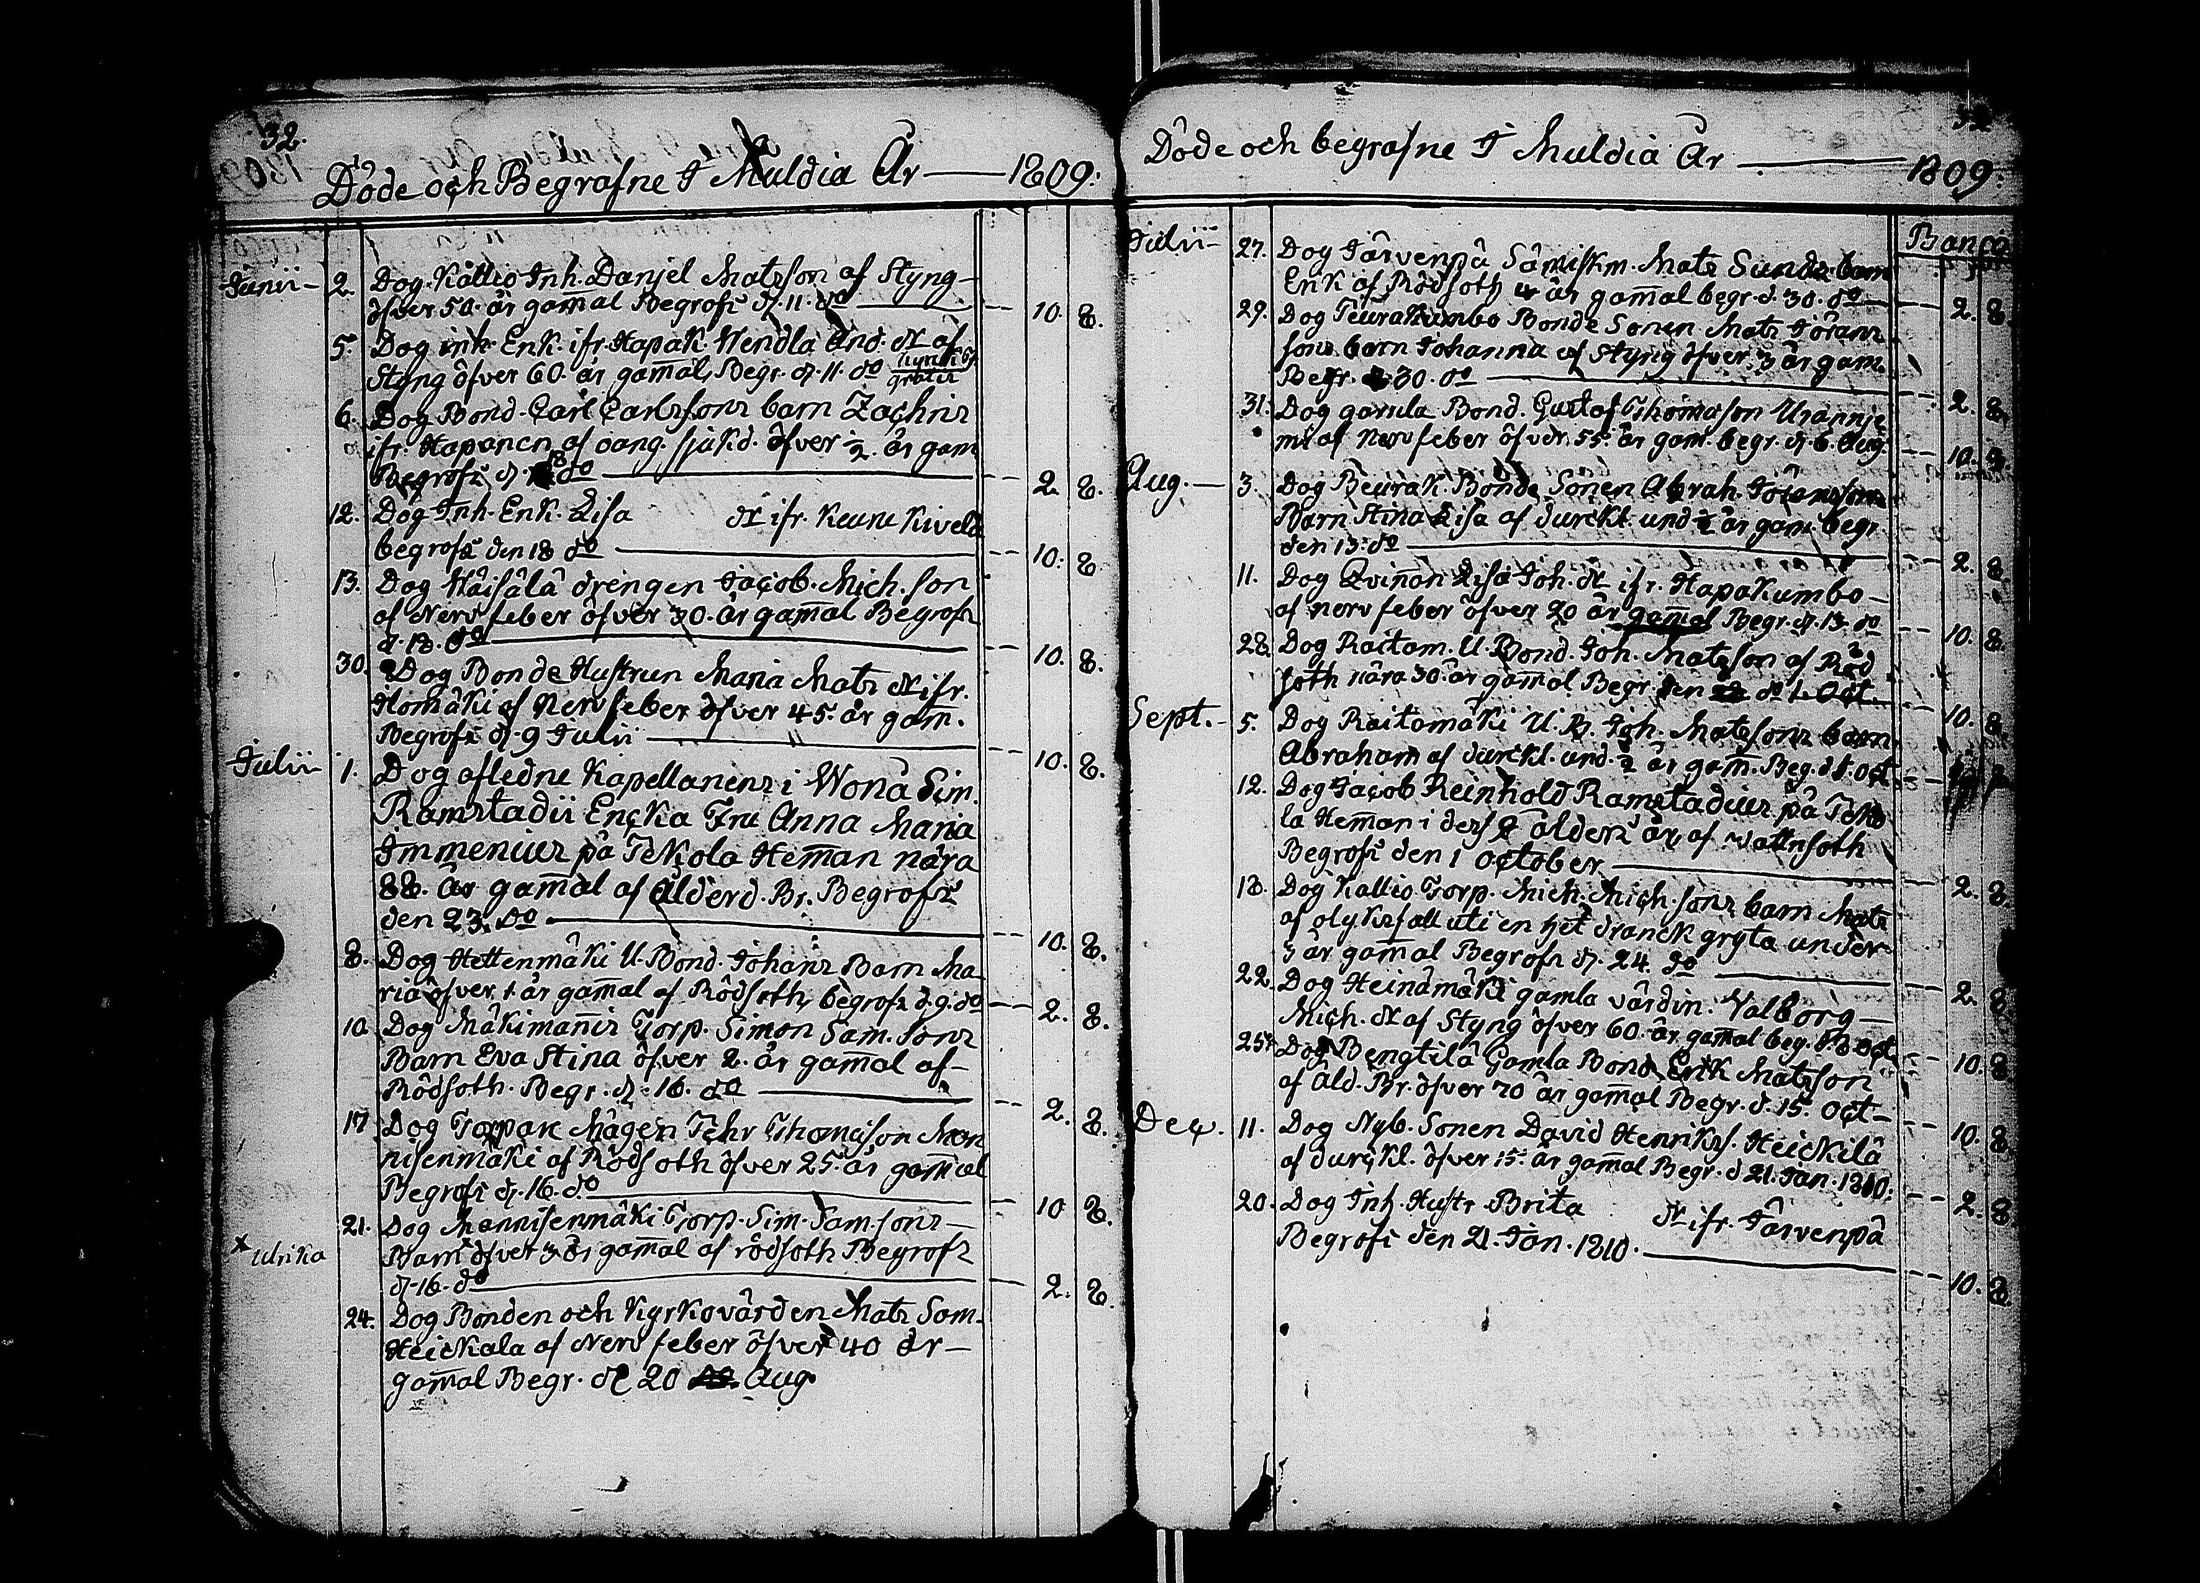 32.
Döde och Begrafne I Muldia År — 1809:
Junii — 2. Dog Kallio Inh. Danjel Matsson af Styng
öfver 50. år gamal Begrofs d. 11. do — 10. 8.
5. Dog inh. Enk. ifr. Hapak. Wendla And. dr af
Styng öfver 60. år gamal, Begr. d. 11. do gratis
6. Dog Bond. Carl Carlssons barn Zachris
ifr. Hapanen af oang. sjukd. öfver ½ år gam
Begrofs d. 18 do — 2. 8.
12. Dog Inh. Enk. Lisa dr ifr. Keuru Kivelä
begrofs den 18 do — 10. 8.
13. Dog Häisälä drengen Jacob Mich. son
af Nerv feber öfver 30. år gamal Begrofs
d. 18. do — 10. 8.
30. Dog Bonde Hustrun Maria Mats dr ifr.
Homäki af Nerv feber öfver 45. år gam.
Begrofs d. 9 Julii — 10. 8.
Julii 1. Dog afledne Kapellanens i Wonå Sim.
Ramstadii Encka Fru Anna Maria
Immenius på Tekiola Heman nära
88. år gamal af Ålderd. Br. Begrofs
den 23. do — 10. 8.
8. Dog Hettenmäki U. Bond. Johans Barn Ma-
ria öfver 1 år gamal af Rödsoth, begrofs d. 9. do — 2. 8.
10. Dog Mäkimanis Torp. Simon Sam. sons
Barn Eva Stina öfver 2. år gamal af
Rödsoth. Begr. d. 16. do — 2. 8.
17. Dog Torpare Mågen Johs Thomasson Man
nisenmäki af Rödsoth öfver 25. år gamal
Begrofs d. 16. do — 10. 8.
21. Dog Mannisenmäki Torp. Sim. Sam. sons —
x Ulrika Barn öfver 3 år gamal af rödsoth Begrofs
d. 16. do — 2. 8.
24. Dog Bonden och Kyrkovärden Mats Sam.
Heickala af Nerv feber öfver 40 år —
gamal Begr. d. 20 Aug.
Döde och begrafne I Muldia År — 1809:
Banco
Julii — 27. Dog Järvenpä Sämiskm. Mats Sunds barn
Erik af Rödsoth 4 år gamal begr. d. 30. do — 2. 8.
29. Dog Peurakumbo Bonde Sonen Mats Jöranssons
barn Johanna af Styng öfver 3 år gam.
Begr. 30. do — 2. 8.
31. Dog gamla Bond. Gustaf Thomasson
af Nerv feber öfver 55. år gam. begr. d. 6. Aug. 10. 8.
Aug. — 3. Dog Peurak. Bonde Sonen Abrah. Jöranssons
Barn Stina Lisa af durckl. und. ½ år gam. begr.
den 13. do — 2. 8.
11. Dog Qvinan Lisa Joh. dr ifr. Hapakumbo —
af nerv feber öfver 20 år gamal Begr. d. 13. do — 10. 8.
28. Dog Raitam. U. Bond. Joh. Matsson af Röd
soth nära 30. år gamal Begr. den 1. Oct. — 10. 8.
Sept. — 5. Dog Raitomäki U. B. Joh. Matssons barn
Abraham af durckl. und. ½ år gam. Beg. d. 1. Oct
12. Dog Jacob Reinhold Ramstadius på Teko
la Heman i dess 9 ålders år af vattusoth
Begrofs den 1 October — 2. 8.
18. Dog Kallio Torp. Mich. Mich. sons barn Mats
af olyksfall uti en het dranck gryta under
3 år gamal Begrofs d. 24. do — 2. 8.
22. Dog Heinämäki gamla värdin. Valborg —
Mich. dr af Styng öfver 60. år gamal beg. Oct — 10. 8.
25. Dog Bengtilä Gamla Bond Erik Matsson
af Åld. Br. öfver 70 år gamal Begr. d. 15. Oct — 10. 8.
Dec. 11. Dog Nyb. Sonen David Henriks. Heickilä
af durckl. öfver 15. år gamal Begr. d 21. Jan. 1810: 2. 8.
20. Dog Inh. Hustr Brita dr ifr. Järvenpä
Begrofs den 21. Jan. 1810. — 10. 8.